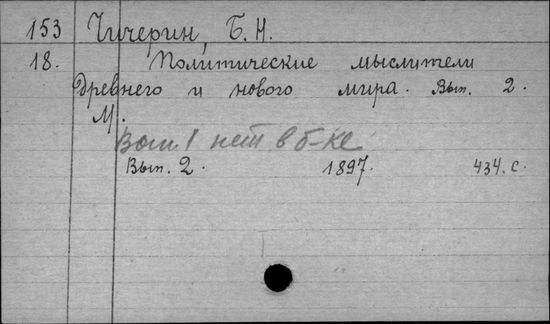 153 Чичерин, Б. Н.
18. Политические мыслители
древнего и нового мира. Вып. 2.
М.
Вып. 1 нет в б-ке
Вып. 2. 1897. 434. с.